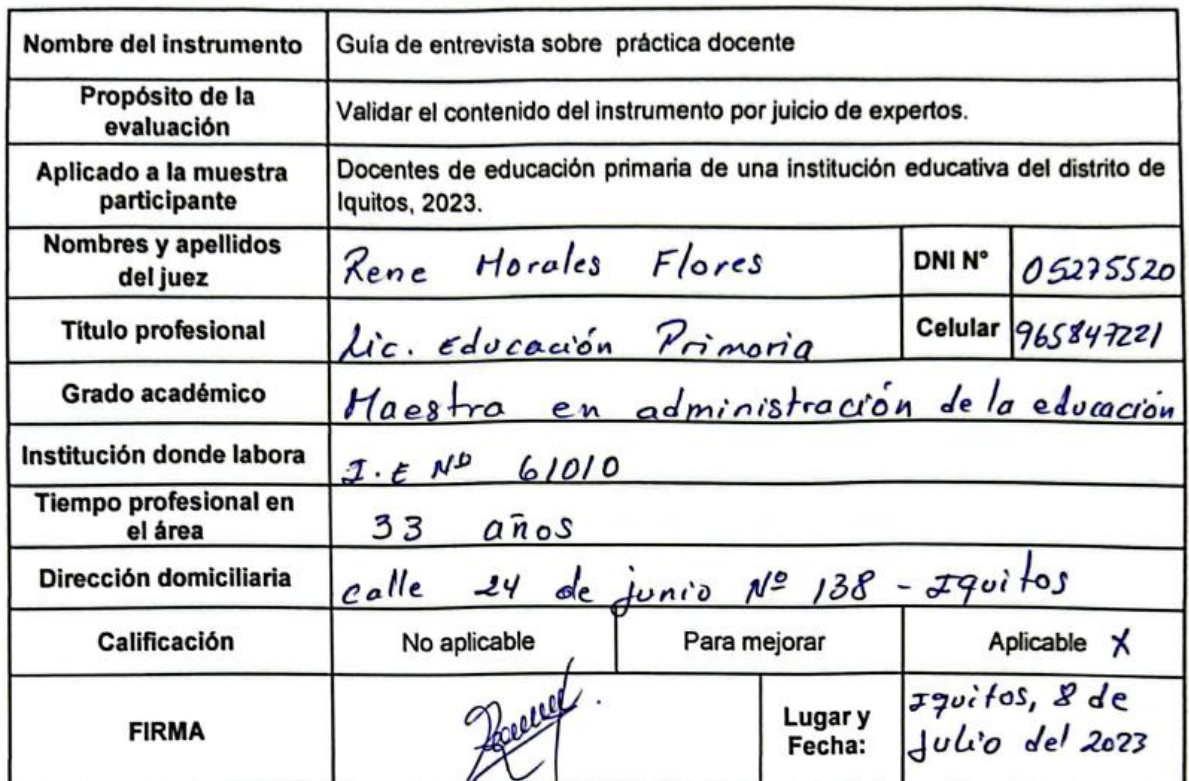 Nombre del instrumento Guía de entrevista sobre práctica docente
Propósito de la
evaluación
Validar el contenido del instrumento por juicio de expertos.
Aplicado a la muestra
participante
Docentes de educación primaria de una institución educativa del distrito de
Iquitos, 2023.
Nombres y apellidos
del juez
Rene Morales Flores
DNI N° 05275520
Título profesional Lic. Educación Primaria
Celular 965847221
Grado académico Maestra en administración de la educación
Institución donde labora I.E Nº 61010
Tiempo profesional en
el área
33 años
Dirección domiciliaria calle 24 de junio Nº 138 - Iquitos
Calificación No aplicable Para mejorar Aplicable X
FIRMA
Lugar y
Fecha:
Iquitos, 8 de
Julio del 2023